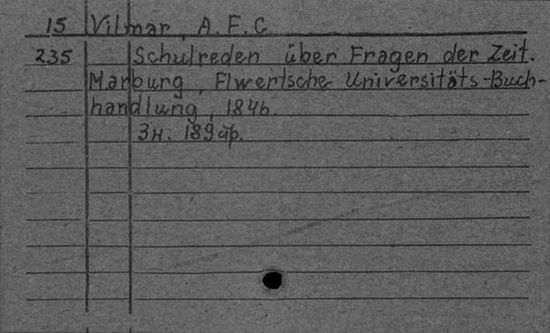 15 Vilmar, A. F. C
235 Schulreden über Fragen der Zeit.
Marburg, Elwertsche Universitäts-Buch-
handlung, 1846.
3н. 189 др.